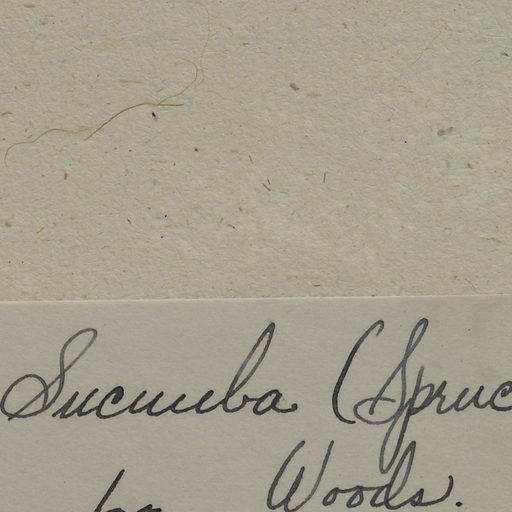 Sucumba (Spruc
Woods.